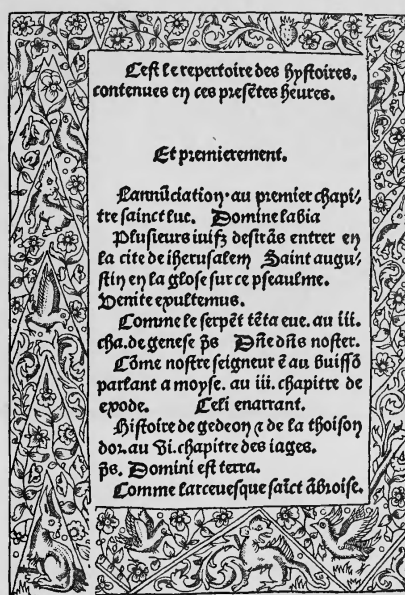 Cest le repertoire des hystoires.
contenues en ces presẽtes heures.
Et premierement.
Lannũciation·au premier chapi⸗
tre sainct luc. Domine labia
Plusieurs iuifz desirãs entrer en
la cite de iherusalem Saint augu⸗
stin en la glose sur ce pseaulme.
Venite exultemus.
Comme le serpẽt tẽta eue. au iii.
cha. de genese p̃s Dñe dñs noster.
Cõme nostre seigneur ẽ au buissõ
parlant a moyse. au iii. chapitre de
exode. Celi enarrant.
Histoire de gedeon ⁊ de la thoison
dor. au vi. chapitre des iages.
p̃s. Domini est terra.
Comme larceuesque saĩct ãbroise.